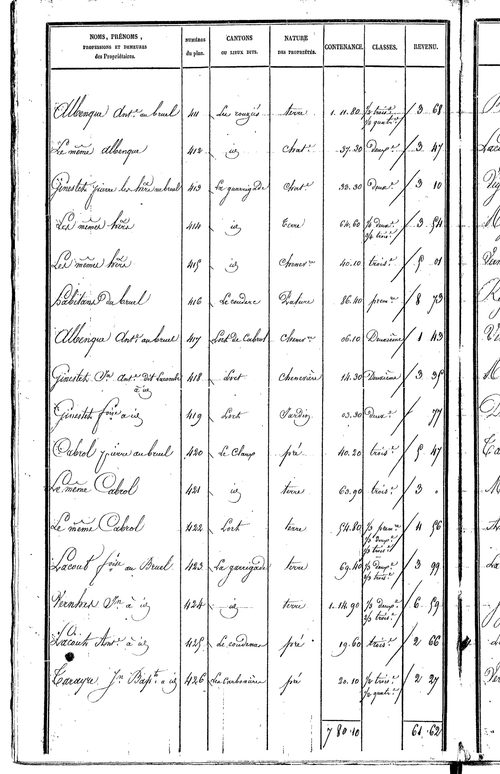 NOMS, PRÉNOMS, PROFESSIONS ET DEMEURES des Propriétaires. NUMÉROS du plan. CANTONS OU LIEUX DITS. NATURE DES PROPRIÉTÉS. CONTENANCE. CLASSES. REVENU.
Albenque Ant.ne au bruel 411 Les rougiés terre 1.11.80 3 68
Le même Albenque 412 id Chat.e 37.30 Deux.e 3 47
Ginestet pierre les hére au bruel 413 La garrigade Chat.e 33.30 Deux.e 3 10
Les mêmes hére 414 id Terre 64.60 3 54
Les même hére 415 id Chener.re 40.10 trois.e 5 01
habitans du bruel 416 Le couderc Pature 86.40 prem.re 8 73
Albenque Ant.ne au bruel 417 Lort de Cabrol Chenev.re 06.10 Deuxième 1 43
Ginestet Jn Ant.ne dit à id 418 Lort Chenevière 14.30 Deuxième 3 35
Ginestet foise à id 419 Lort Jardin 03.30 Deux.e 77
Cabrol pierre au bruel 420 Le Claux pré 40.20 trois.e 5 47
Le même Cabrol 421 id terre 60.90 trois.e 3 .
Le même Cabrol 422 Lort terre 54.80 4 56
Lacout foise au Bruel 423 La garrigade terre 69.40 3 99
Vernhes Jn à id 424 id terre 1.14.90 6 59
Lacout Ant.ne à id 425 Le couderc pré 19.60 trois.e 2 66
Carayre Jn Bap.te à id 426 La carbonière pré 20.10 2 27
7 80.10 61.62